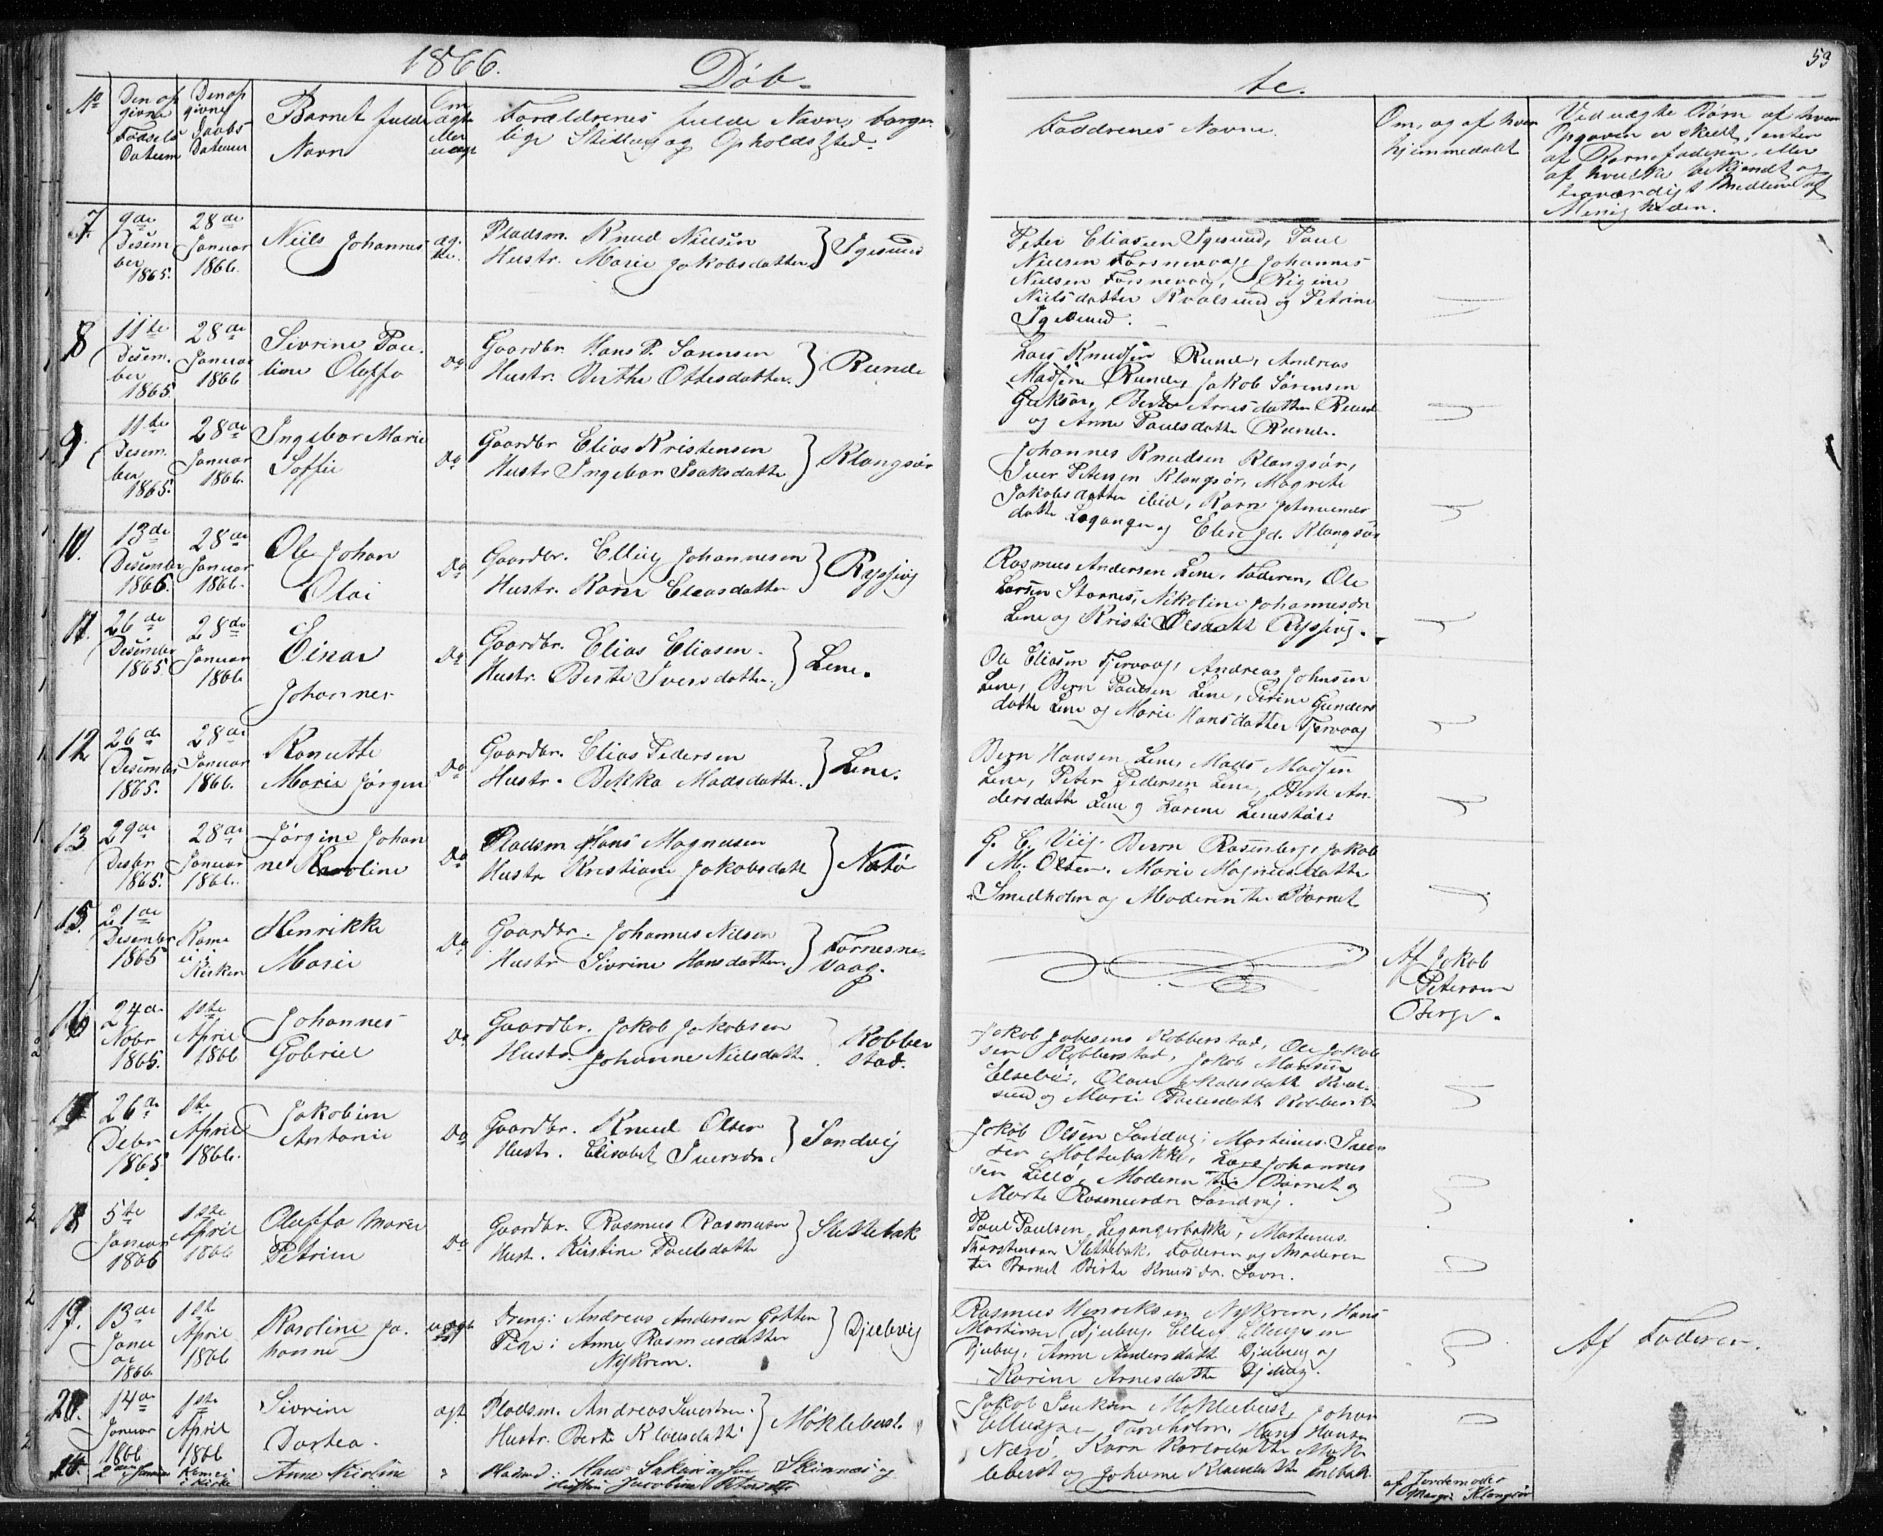 1866.
Døb-
te.
53
No
Den op
givne
Fødsels
Datum
Den op
givne
Daabs
Datum
Barnets fulde
Navn
Om
ægte
eller
uægte
Forældrenes fulde Navn, borger
lige Stilling og Opholdssted.
Faddrenes Navne.
Om, og af hvem
hjemmedøbt
Ved uægte Børn af hvem
Opgaven er skeet, enten
af Barnefaderen, eller
af hvilke bekjendt og
troværdigt Medlem af
Menigheden.
7.
9de
Desem
ber
1865.
28de
Januar
1866.
Niels Johannes
æg.
te.
Pladsm. Knud Nielsen
Hustr. Marie Jakobsdatter
Igesund
Peter Eliassen Igesund, Paul
Nielsen Torsnevaag, Johannes
Nielsen Torsnevaag, Rigine
Nielsdatter Kvalsund og Petrine
Igesund.
8
11te
Desem.
ber
1865.
28de
Januar
1866
Sivrine Pau-
line Oluffa
Do
Gaardbr. Hans P. Sørensen
Hustr. Berthe Ottesdatter.
Runde
Lars Knudsen Runde, Andreas
Madsen Runde, Jakob Sørensen
Berte Arnesdatter Runde
og Anne Paulsdatter Runde.
9.
11te
Desem.
ber
1865.
28de
Januar
1866.
Ingebor Marie
Soffie
Do
Gaardbr Elias Kristensen
Hustr Ingebor Isaksdatter
Klongsør
Johannes Knudsen Klongsør,
Iver Petersen Klongsør, Magrete
Jakobsdatter ibid, Karn
datter Leganger og Elen Jd. Klongsør
10.
13de
Desember
1865.
28de
Januar
1866.
Ole Johan
Olai
Do
Gaardbr. Elling Johannesen
Hustr. Karn Eliasdatter
Rypsvig
Rasmus Andersen Lene, Faderen, Ole
Larsen Stornes, Nikoline Johannesdr
Lene og Kristi Olsdatter Rypsvig.
11.
26de
Desember
1865
28de
Januar
1866
Einar
Johannes
Do
Gaardbr. Elias Eliasen.
Hustr. Berte Iversdatter.
Lene.
Ole Eliasen Tjervaag, Andreas Johnsen
Lene, Bern Paulsen Lene, Serine Gunders
datter Lene og Marie Hansdatter Tjervaag
12
26de
Desember
1865.
28de
Januar
1866.
Kanutte
Marie Jørgen
Do
Gaardbr. Elias Pedersen
Hustr. Bekka Madsdatter.
Lene.
Bern Hansen Lene, Mads Madsen
Lene, Peter Pedersen Lene, Berte An-
dersdatter Lene og Karene Lenestøl
13
29de
Desbr
1865.
28de
Januar
1866.
Jørgine Johan
ne Karoline
Do
Pladsm Hans Magnusen
Hustr Kristiane Jakobsdatt
Notø
G. E. Viig. Bern Rosenberg, Jakob
M. Olsen. Marie Magnusdatter
Smedholm og Moderen til Barnet
15.
21de
Desember
1865
Kom
ei i
Kirken
Henrikke
Marie
Do
Gaardbr. Johannes Nilsen
Hustr Sivrine Hansdatter.
Tornesne-
vaag.
Af Jakob
Petersen
Berge.
16
24de
Nobr
1865.
1ste
April
1866
Johannes
Gabriel
Do
Gaardbr. Jakob Jakobsen
Hustr. Johanne Nielsdatter
Robber
stad.
Jakob Robberstad, Ole Jakob
sen Robberstad, Jakob
Olave Jakobsdatt Kval-
sund og Marie Paulsdatt Robberst.
17
26de
Debr
1865.
1ste
April
1866.
Jakobine
Antonie
Do
Gaardbr. Knud Olsen
Hustr. Elisabet Iversdr.
Sandvig
Jakob Olsen Sandvig. Martinus Iver
sen Moltubakke, Lars Johannes
sen Lillø, Moderen til Barnet og
Marte Rasmusdr Sandvig.
18
5te
Januar
1866
1ste
April
1866
Oluffa Marie
Petrine
Do
Gaardbr. Rasmus Rasmusen
Hust. Kirstine Paulsdatter
Slettebak
Paul Paulsen Legangerbakke, Martinus
Thorstensen Slettebak, Faderen og Moderen
til Barnet Berte Knudsdr. Savn.
19.
13de
Janu
ar
1866
1ste
April
1866
Karoline Jo-
hanne
uægte
Dreng: Andreas Andersen Gotten
Pige: Anne Rasmusdatter
Nykrem.
Djubvig
Rasmus Henriksen Nykrem, Hans
Martinsen Djubvig, Elling Ellingsen
Djubvig, Anne Andersdatt Djubvig og
Karine Arnesdatter Djubvig.
Af Faderen.
20.
14de
Januar
1866
1ste
April
1866
Sivrine
Dortea.
ægt.
Pladsm. Andreas Sivertsen.
Hustr. Berte Klausdatt.
Møklebust.
Jakob Møklebust, Johan
Hans Hansen
Nærø, Karn Karlsdatter Møk
lebust og Johanne Klausdatter
14.
Januar
Kom ei
i Kirke
Anne Nicoline
Hans
Hustru Jacobine
af Jordemoder
Klongsør